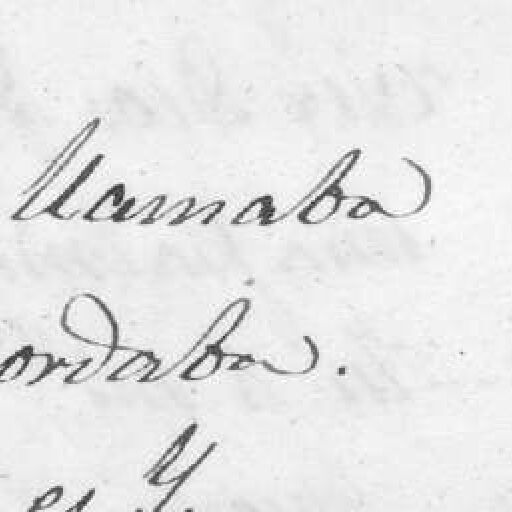 llamaba
ordaba.